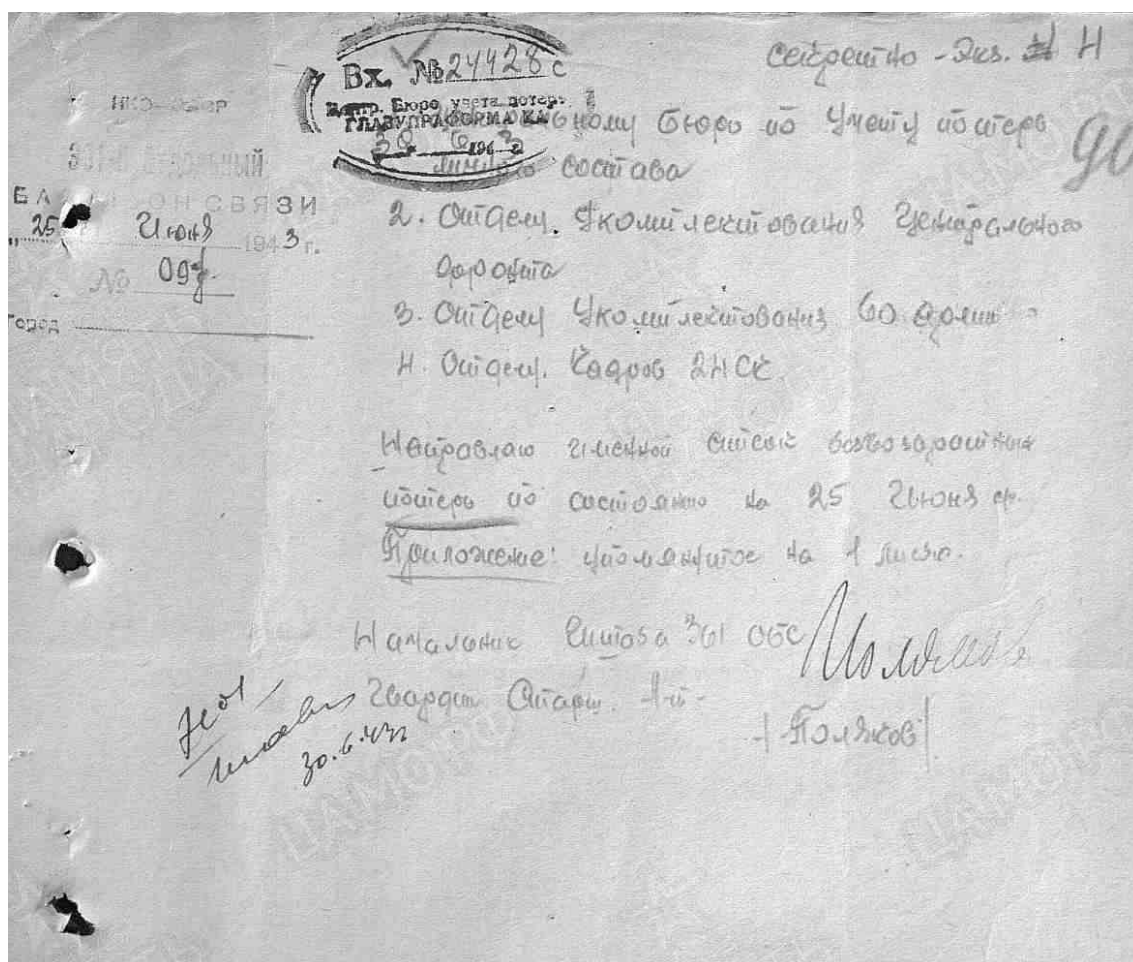 Секретно - Экз. № 4
Вх. № 24428 с
Центр. Бюро учета потерь
ГЛАВУПРАФОРМА КА
30 6 1943
НКО-СССР
361-й отдельный
БАТАЛЬОН СВЯЗИ
"25" Июня 1943 г.
№
Город
90
Центральному Бюро по Учету потерь
личного состава
2. Отделу Укомплектования Центрального
фронта
3. Отделу Укомплектования 60 Армии
4. Отделу Кадров 24 СК.
Направляю именной список безвозвратных
потерь по состоянию на 25 Июня с/г.
Приложение: упомянутое на 1 листе.
Начальник Штаба 361 ОБС
Гвардии Старш. л-т-
/Поляков/
30.6.43г
ЦАМО РФ